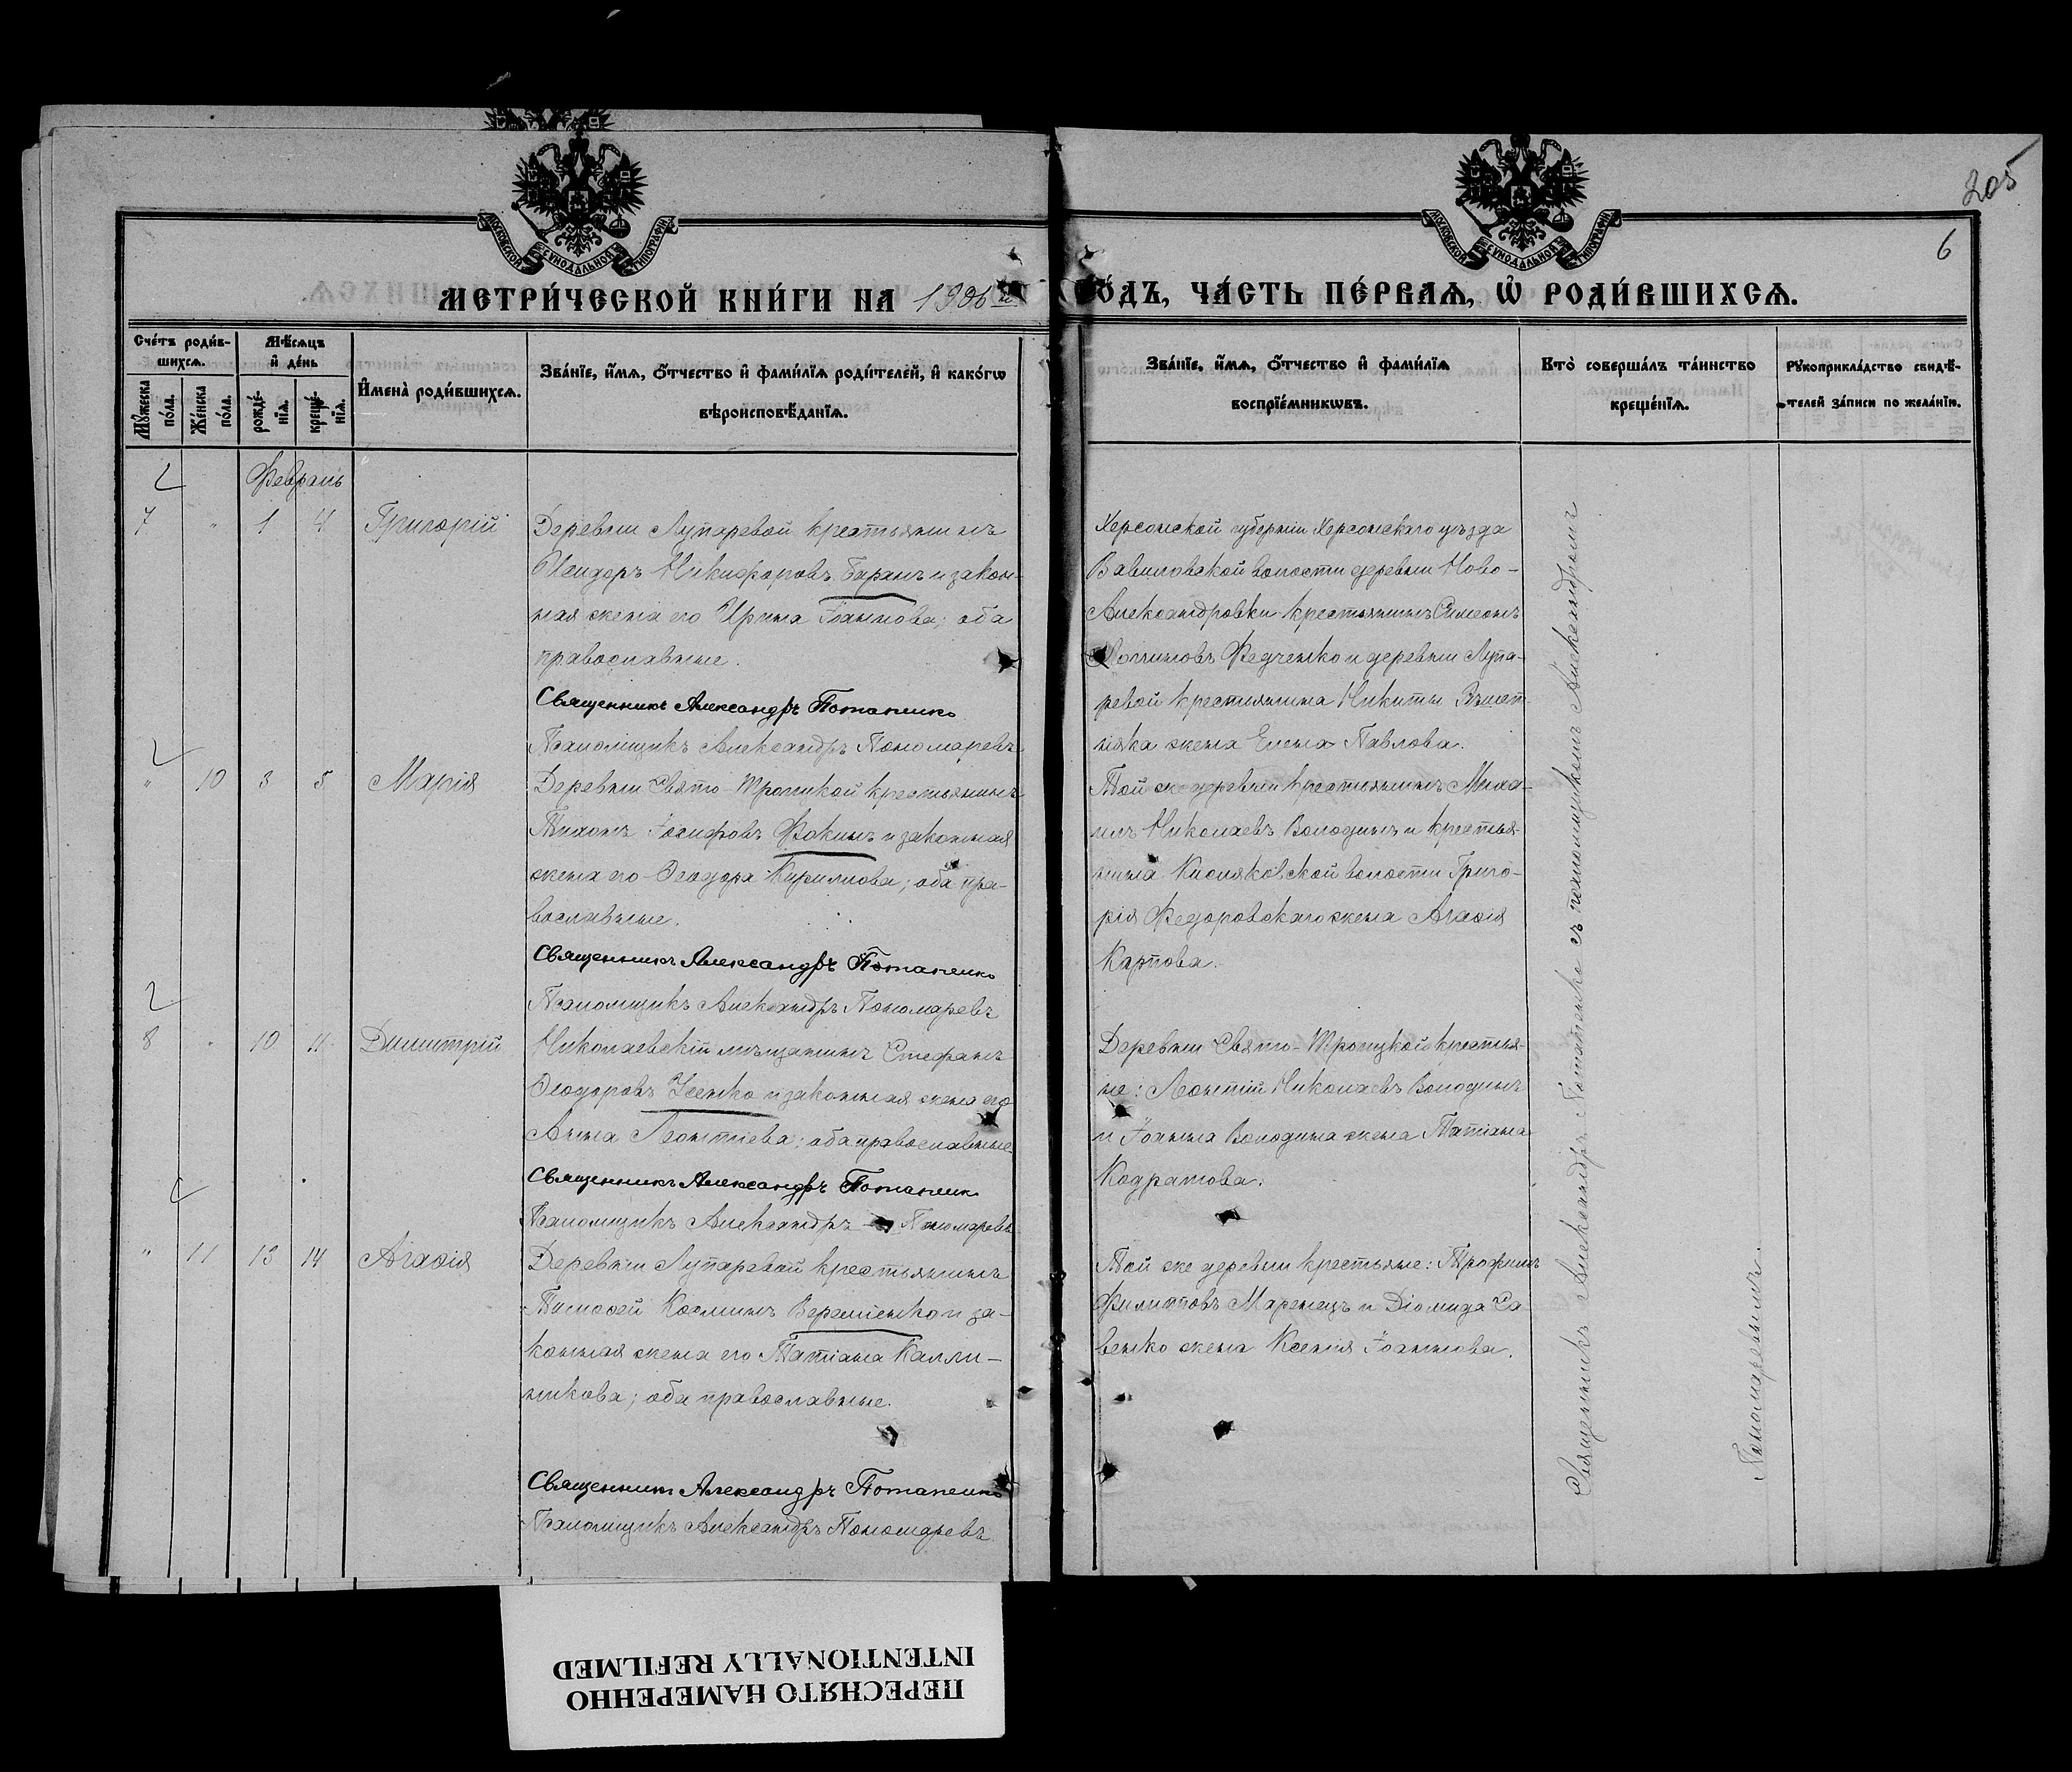 205
6
МОСКОВСКОЙ СѴНОДАЛЬНОЙ ТИПОГРАФІИ
МОСКОВСКОЙ СѴНОДАЛЬНОЙ ТИПОГРАФІИ
МЕТРИ́ЧЕСКОЙ КНИ́ГИ НА 1906 й
О́ДЪ, ЧА́СТЬ ПЕ́РВАѦ, Ѡ҆ РОДИ́ВШИХСѦ.
Сче́тъ роди́в-
шихсѧ.
Мꙋжеска по́ла.
Же́нска по́ла.
Мѣ́сѧцъ
и҆ де́нь
рожде́-
нїѧ.
креще́-
нїѧ.
И҆мена̀ роди́вшихсѧ.
Зва́нїе, и҆́мѧ, ѻ҆́тчество и҆ фами́лїѧ роди́телей, и҆ како́гѡ
вѣроисповѣ́данїѧ.
Зва́нїе, и҆́мѧ, ѻ҆́тчество и҆ фами́лїѧ
воспрїе́мникѡвъ.
Кто̀ соверша́лъ та́инство
креще́нїѧ.
Рꙋкоприкла́дство свидѣ́-
телей за́писи по жела́нїю.
Февраль
7 " 1 4 Григорій
Деревни Лупаревой крестьянинъ
Исидоръ Никифоровъ Баранъ и закон-
ная жена его Ирина Іоаннова; оба
православные.
Священникъ Александръ Потапенко
Псаломщикъ Александръ Пономаревъ
Херсонской губерніи Херсонскаго уѣзда
Вавиловской волости деревни Ново-
Александровки крестьянинъ Симеонъ
Федченко и деревни Лупа-
ревой крестьянина Никиты
жена Елена Павлова.
" 10 3 5 Марія
Деревни Свято-Троицкой крестьянинъ
Тихонъ Іосифовъ Фокинъ и законная
жена его Ѳеодора Кириллова; оба пра-
вославные.
Священникъ Александръ Потапенко
Псаломщикъ Александръ Пономаревъ
Той же деревни крестьянинъ Миха-
илъ Николаевъ Володинъ и крестья-
нина Кисляковской волости Григо-
рія Федоровскаго жена Агаѳія
Карпова.
8 " 10 11 Димитрій
Николаевскій мѣщанинъ Стефанъ
Ѳеодоровъ Усенко и законная жена его
Анна Леонтіева; оба православные.
Священникъ Александръ Потапенко
Псаломщикъ Александръ Пономаревъ
Деревни Свято-Троицкой крестья-
не: Леонтій Николаевъ Володинъ
и Іоанна Володина жена Татіана
Кодратова.
" 11 13 14 Агаѳія
Деревни Лупаревой крестьянинъ
Тимоѳей Косминъ и за-
конная жена его Татіана Калли-
никова; оба православные.
Священникъ Александръ Потапенко
Псаломщикъ Александръ Пономаревъ
Той же деревни крестьяне: Трофимъ
Филипповъ Маренецъ и Діомида Са-
венко жена Ксенія Іоаннова.
Священникъ Александръ Потапенко съ псаломщикомъ Александромъ
Пономаревымъ.
ПЕРЕСНЯТО НАМЕРЕННО
INTENTIONALLY REFILMED